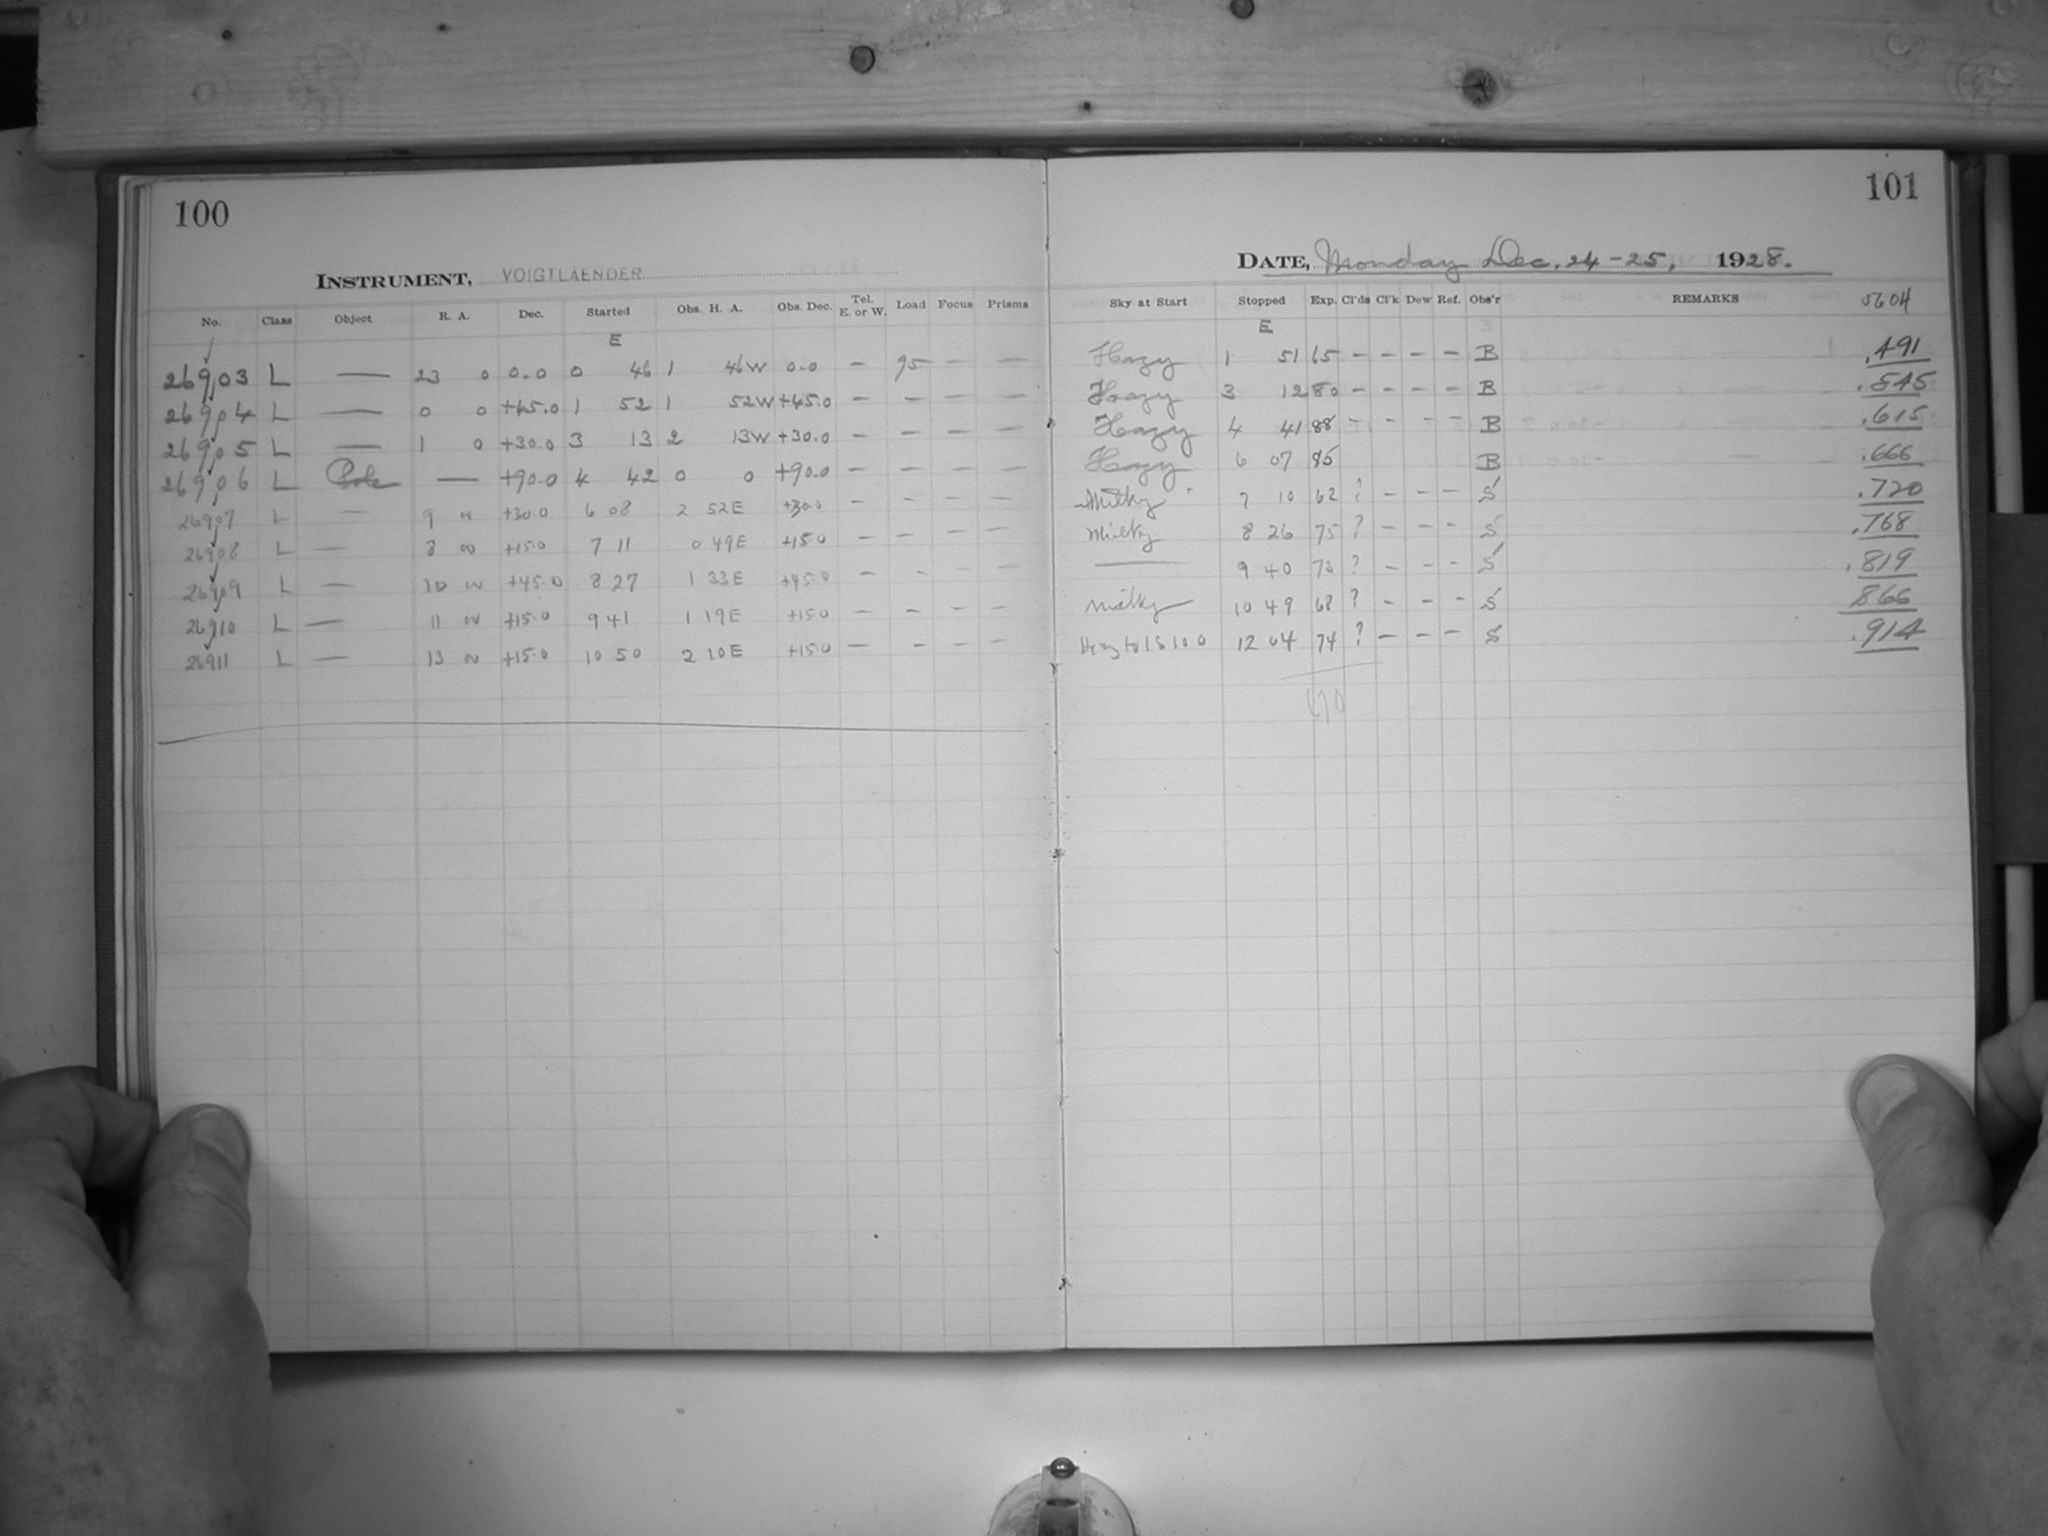 100
INSTRUMENT, VOIGTLAENDER
No. Class Object R. A. Dec. Started Obs. H. A. Obs. Dec. Tel. E. or W. Load Focus Prisms
E
26903 L — 23 0 0.0 0 46 1 46W 0.0 — 95 — —
26904 L — 0 0 +45.0 1 52 1 52W +45.0 — — — —
26905 L — 1 0 +30.0 3 13 2 13W +30.0 — — — —
26906 L Pole — +90.0 4 42 0 0 +90.0 — — — —
26907 L — 9 +30.0 6 08 2 52E +30.0 — — — —
26908 L — 8 +15.0 7 11 0 49E +15.0 — — — —
26909 L — 10 +45.0 8 27 1 33E +45.0 — — — —
26910 L — 11 +15.0 9 41 1 19E +15.0 — — — —
26911 L — 13 +15.0 10 50 2 10E +15.0 — — — —
101
DATE, Monday Dec. 24-25, 1928.
Sky at Start Stopped Exp. Cl'ds Cl'k Dew Ref. Obs'r REMARKS 5604
E
Hazy 1 51 65 — — — — B .491
Hazy 3 12 80 — — — — B .545
Hazy 4 41 88 — — — — B .615
Hazy 6 07 85 B .666
Milky 7 10 62 ? — — — S .720
Milky 8 26 75 ? — — — S .768
— 9 40 73 ? — — — S .819
Milky 10 49 68 ? — — — S .866
12 04 74 ? — — — S .914